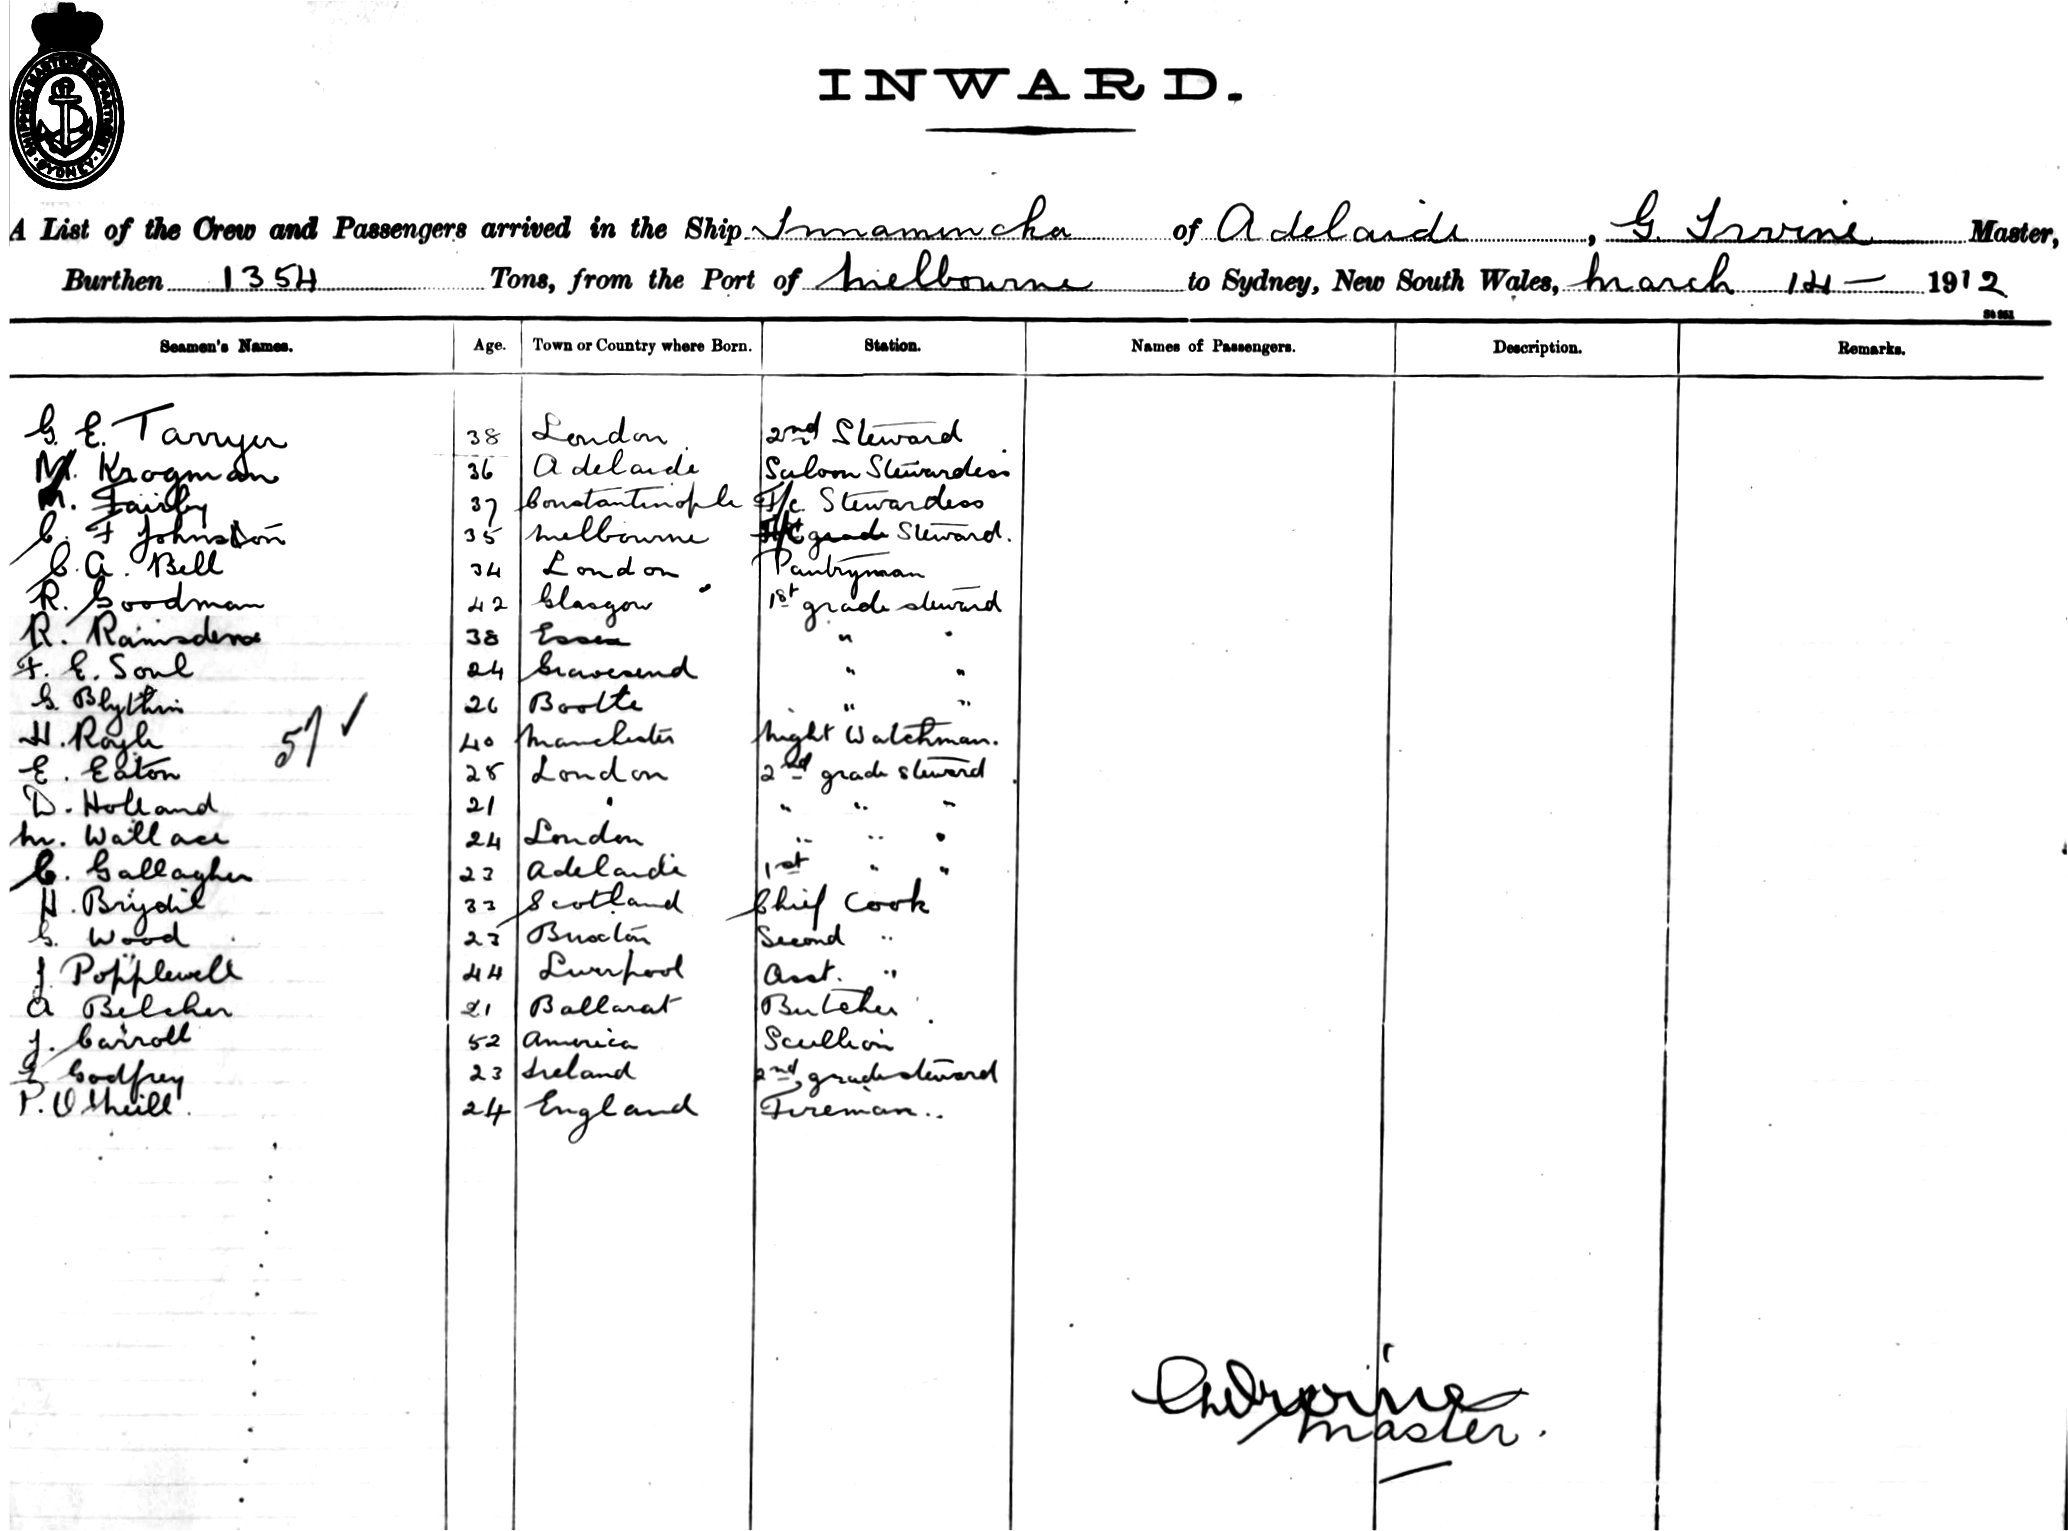 SHIPPING MASTERS DEPARTMENT SYDNEY
INWARD.
A List of the Crew and Passengers arrived in the Ship Innamincka of Adelaide, G. Irvine Master,
Burthen 1354 Tons, from the Port of Melbourne to Sydney, New South Wales, March 14 - 1912
Seamen's Names. Age. Town or Country where Born. Station. Names of Passengers. Description. Remarks.
G. E. Tarryer 38 London 2nd Steward
M. Krogman 36 Adelaide Saloon Stewardess
M. Fairby 37 Constantinople F/c. Stewardess
C. F Johnston 35 Melbourne grade Steward.
C. A. Bell 34 London Pantryman
R. Goodman 42 Glasgow 1st grade steward
R. Ramsden 38 Essex " "
F. E. Soul 24 Gravesend " "
G. Blythin 26 Bootle " "
H. Royle 57 ✓ 40 Manchester Night Watchman.
E. Eaton 28 London 2nd grade steward
D. Holland 21 " " " "
M. Wallace 24 London " " "
C. Gallagher 23 Adelaide 1st " "
H. 33 Scotland Chief Cook
G. Wood 23 Buxton Second "
J Popplewell 44 Liverpool Asst. "
A Belcher 21 Ballarat Butcher
J. Carroll 52 America Scullion
Godfrey 23 Ireland 2nd grade steward
P. O'Neill. 24 England Fireman..
Irvine
Master.